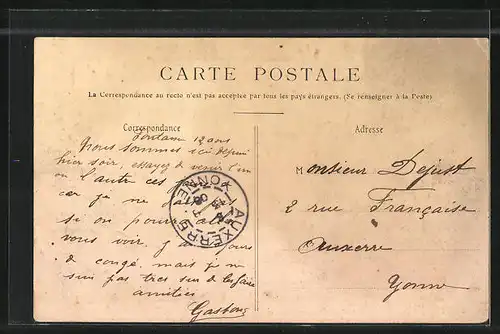 CARTE POSTALE
La Correspondance au recto n'est pas acceptée par tous les pays étrangers. (Se renseigner à la Poste)
Correspondance
Adresse
Nous sommes ici depuis
hier soir essayez de venir l'un
ou l'autre ces
car je ne
si on pourra
vous voir, j'ai jours
de congé, mais je ne
suis pas très sur de les faire
amitiés
Gaston
Monsieur Dejust
2 rue Française
Auxerre
Yonne
AUXERRE
YONNE